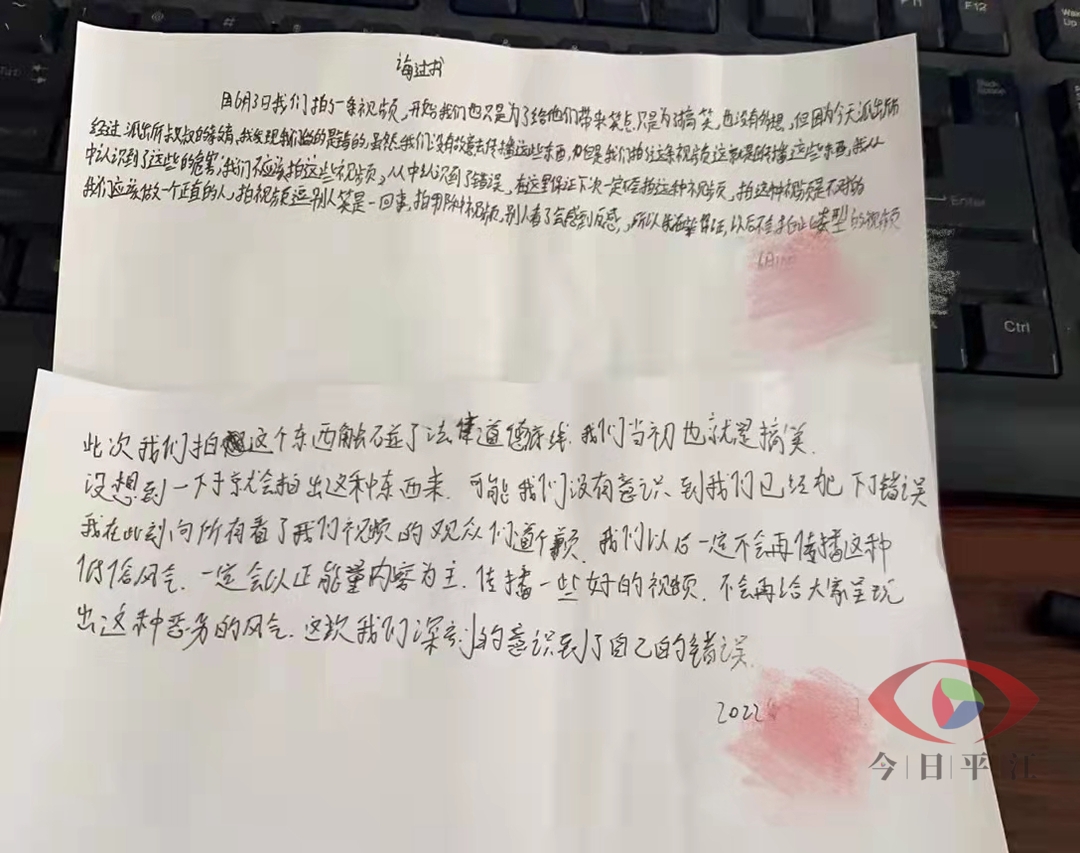 悔过书
因6月3日我们拍了一条视频,开始我们也只是为了给他们带来笑点只是为了搞笑,也没有多想,但因为今天派出所
经过派出所叔叔的,我发现我们拍的是错的,虽然我们没有故意去传播这些东西,但是我们拍这条视频这就是的传播这些东西,我从
中认识到了这些的危害,我们不应该拍这些视频,从中认识到了错误,在这里保证下次一定不会拍这种视频,拍这种视频是不对的
我们应该做一个正直的人,拍视频逗别人笑是一回事,拍视频,别人看了会感到反感,所以我在保证,以后不会拍此类型的视频
此次我们拍这个东西触碰了法律道德底线.我们当初也就是搞笑.
没想到一下子就会拍出这种东西来.可能我们没有意识到我们已经犯下了错误
我在此刻向所有看了我们视频的观众们道个歉.我们以后一定不会再传播这种
低俗风气.一定会以正能量内容为主.传播一些好的视频.不会再给大家呈现
出这种恶劣的风气.这次我们深刻的意识到了自己的错误.
2022
今日平江
Ctrl
Enter
F12